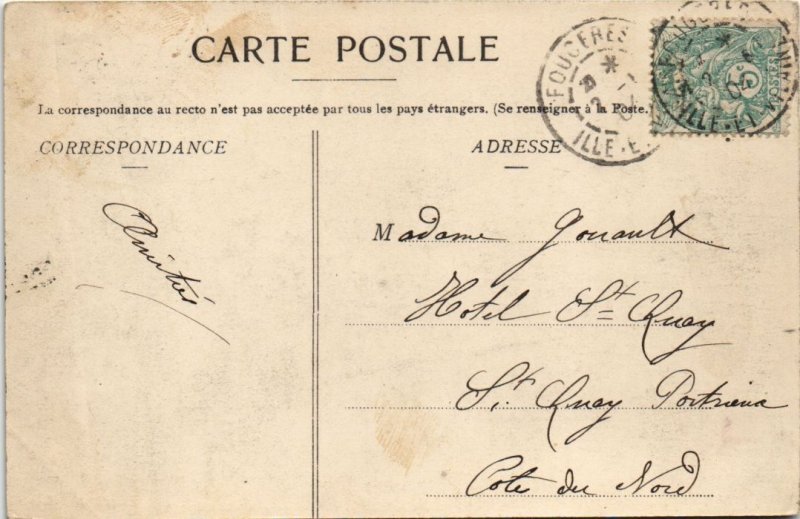 CARTE POSTALE
La correspondance au recto n'est pas acceptée par tous les pays étrangers. (Se renseigner à la Poste.)
CORRESPONDANCE
ADRESSE
FOUGERES
ILLE-ET-
FOUGERES
ILLE-ET-VILAINE
Amitiés
Madame Gouault
Hotel St Quay
St Quay Portrieux
Cote du Nord